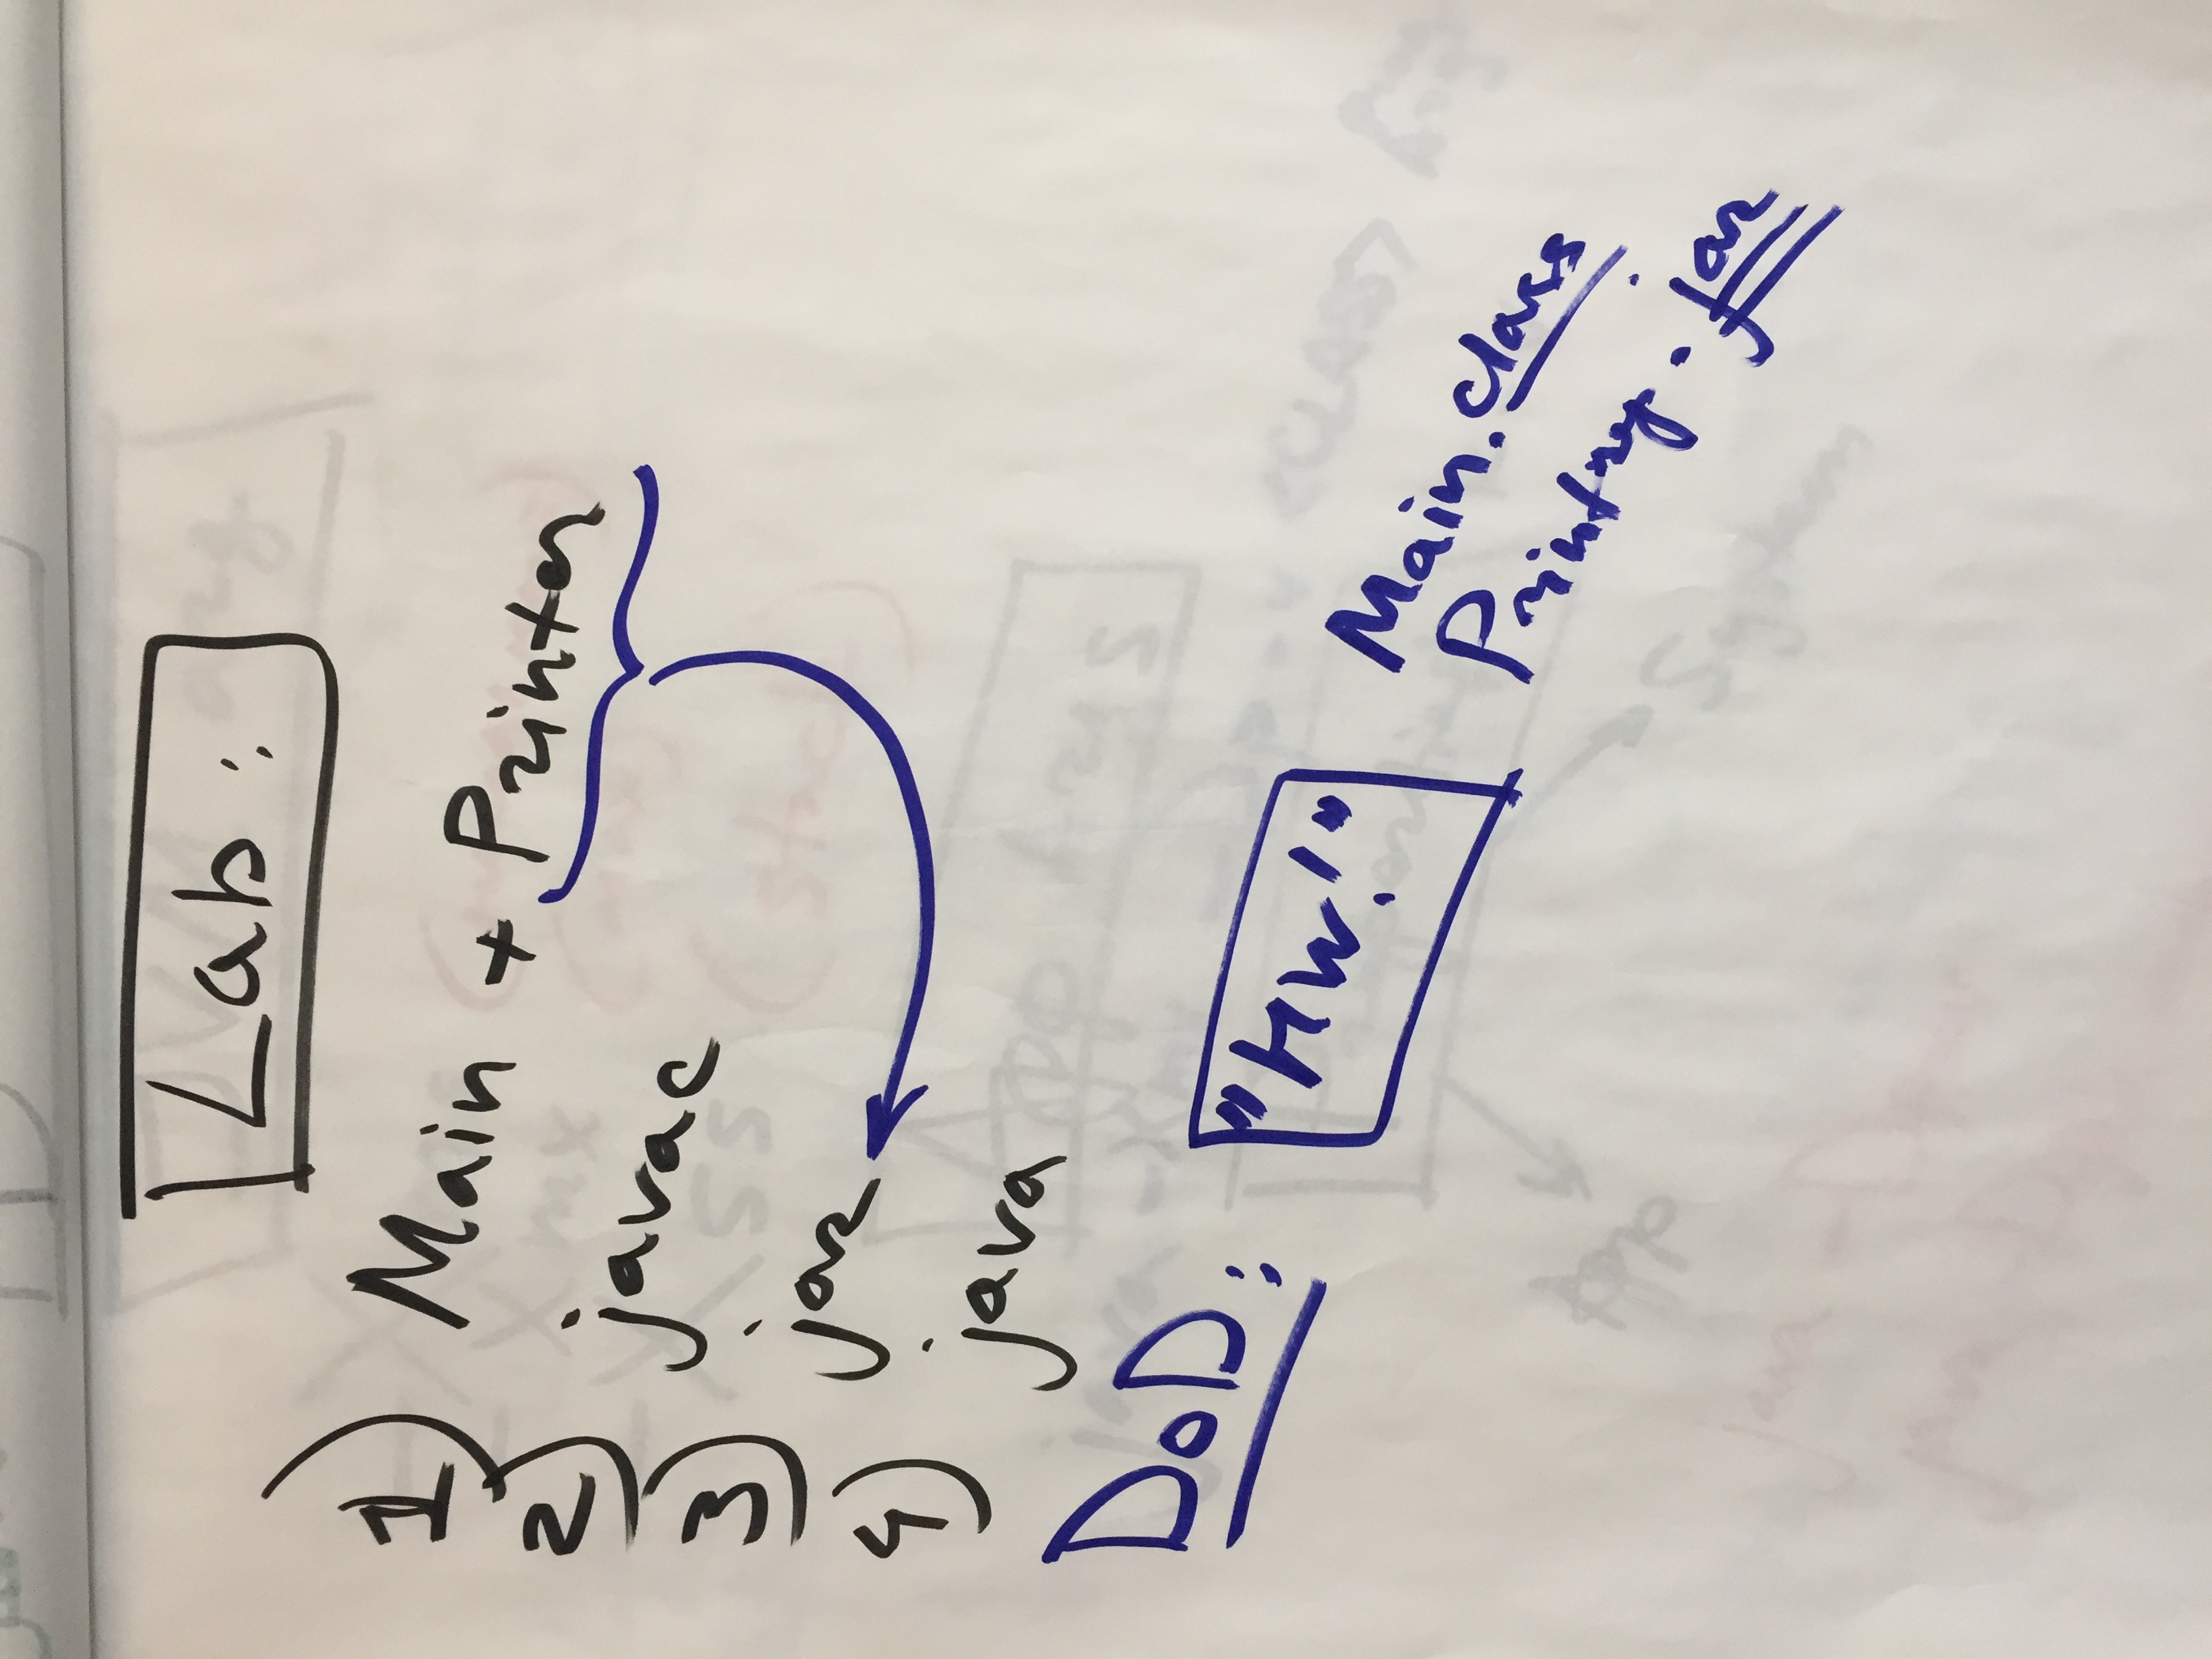 Lab:
1) Main + Printer
2) javac
3) jar
4) java
DoD: "HW!"
Main.class
Printer.jar